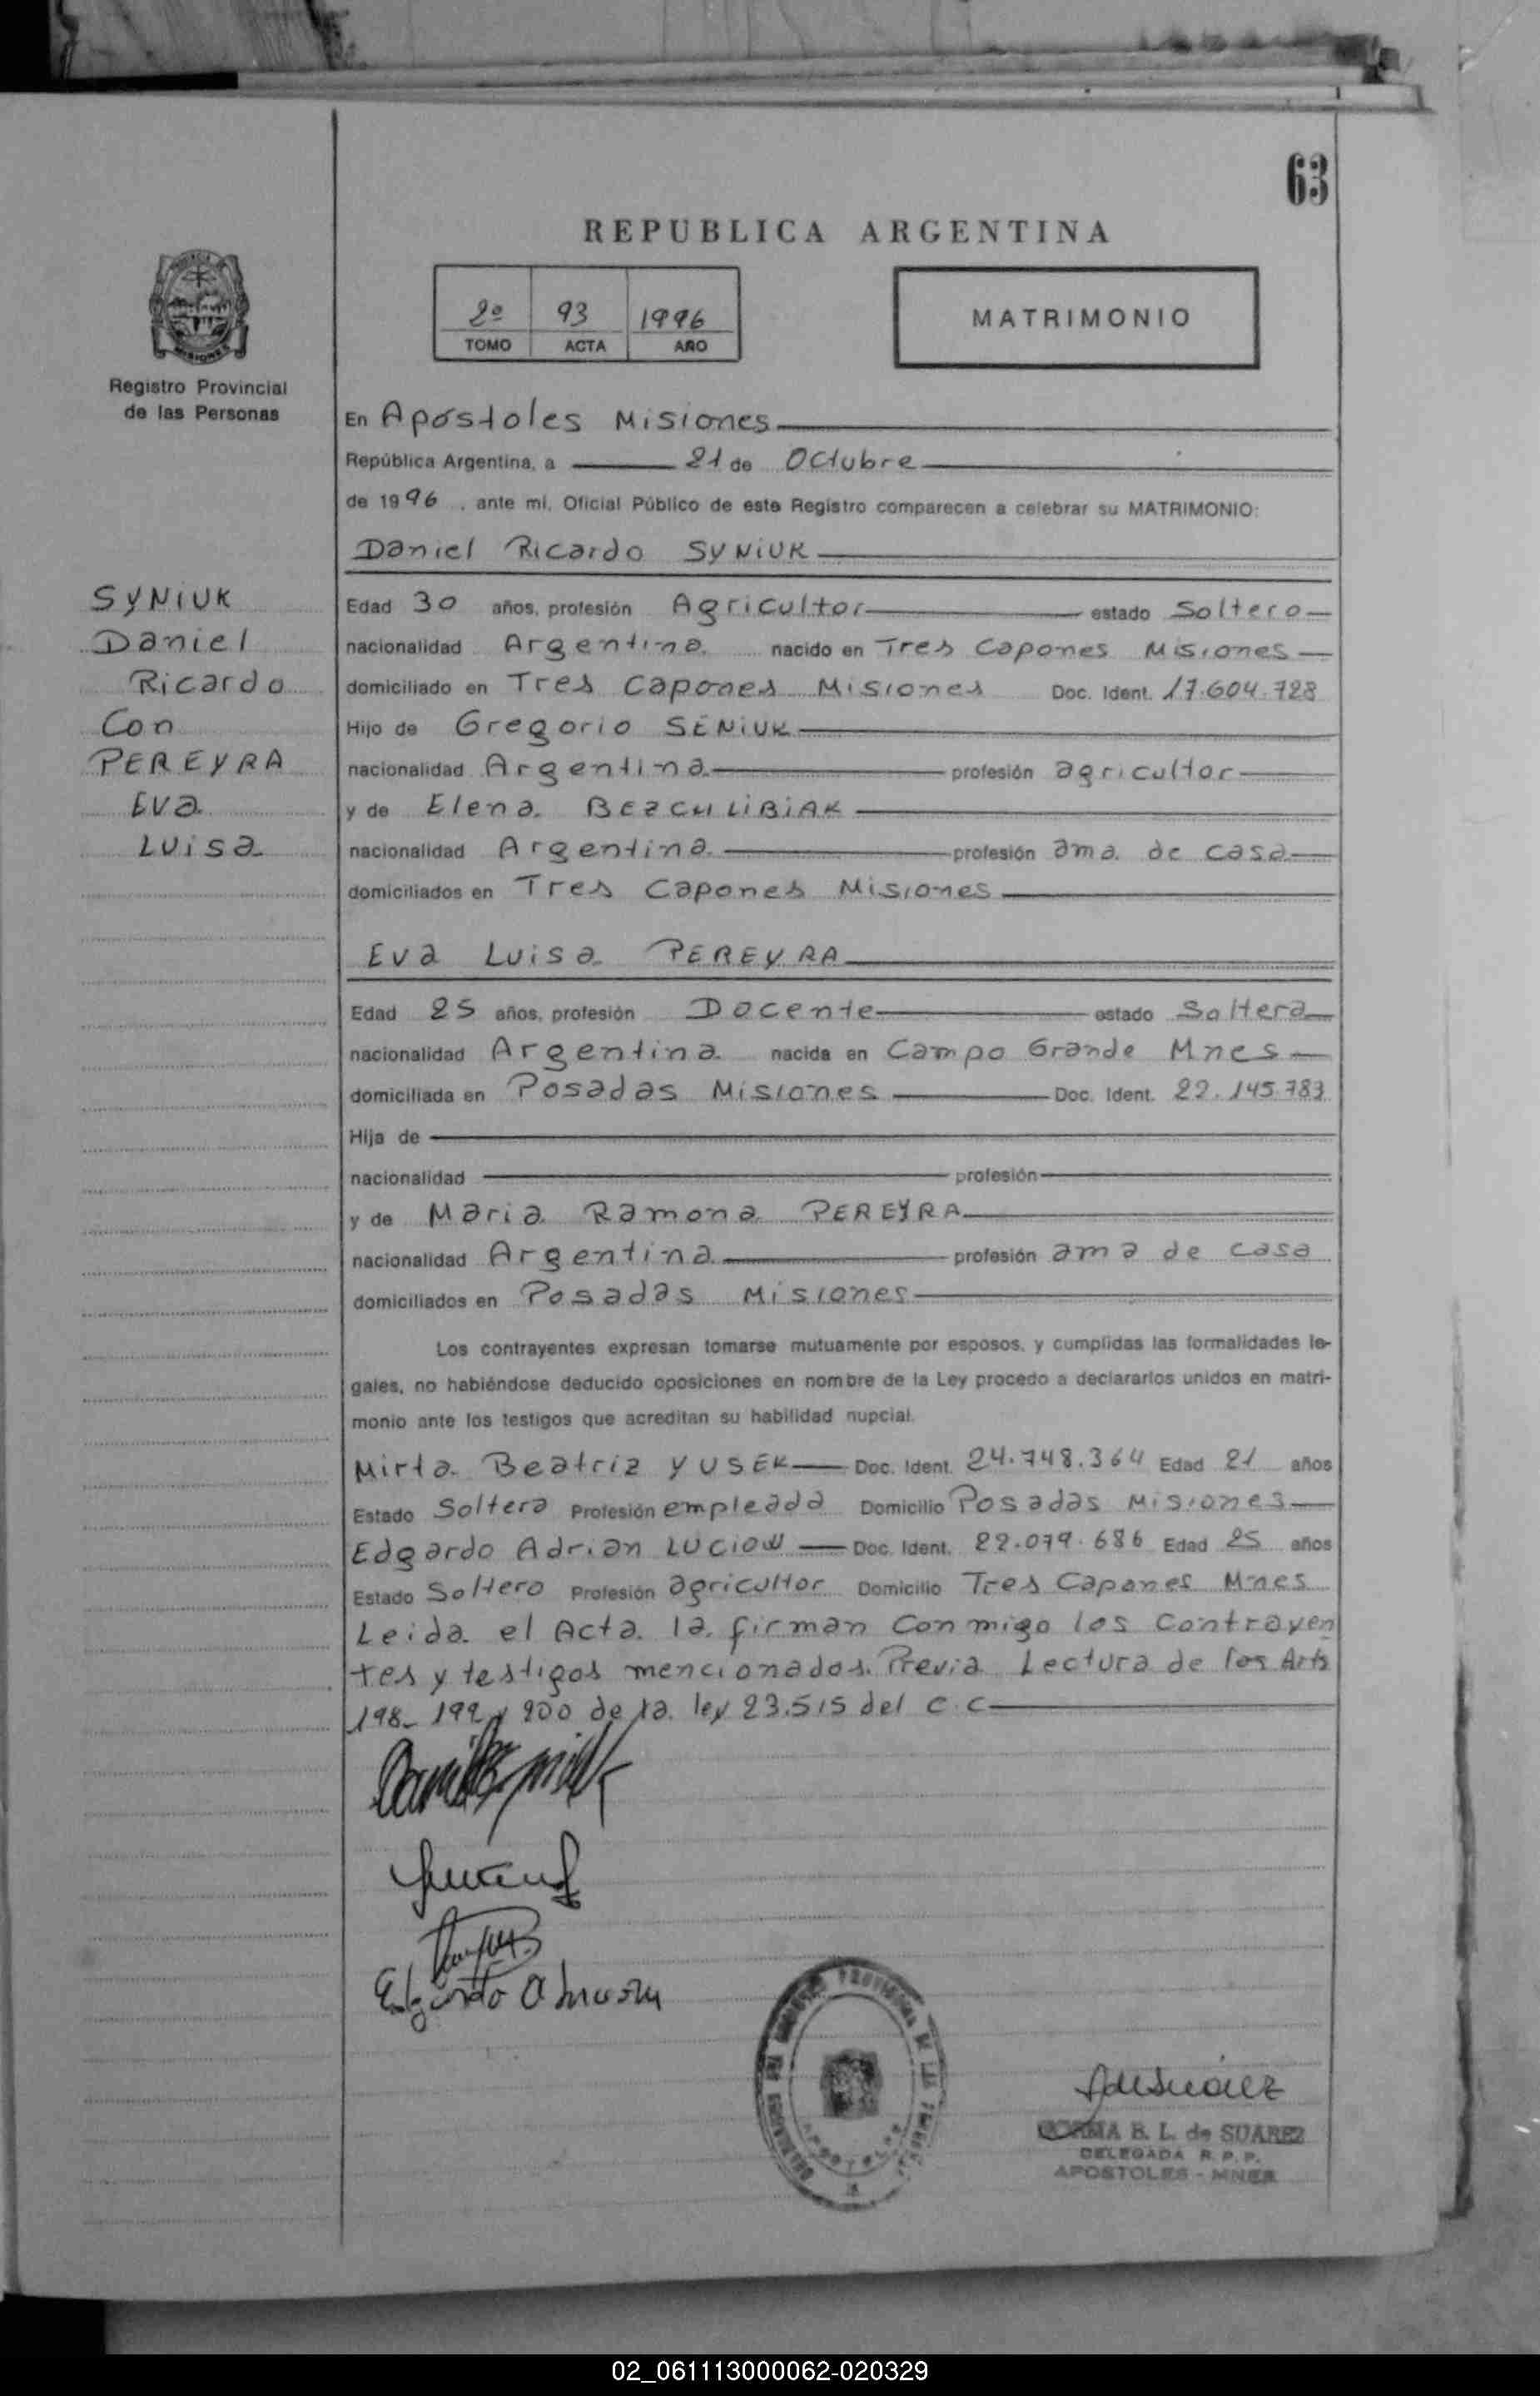 63
REPUBLICA ARGENTINA
2º 93 1996
TOMO ACTA AÑO
MATRIMONIO
MISIONES
Registro Provincial
de las Personas
En Apóstoles Misiones
República Argentina, a 21 de Octubre
de 1996, ante mi, Oficial Público de este Registro comparecen a celebrar su MATRIMONIO:
Daniel Ricardo SYNIUK
SYNIUK
Daniel
Ricardo
Con
PEREYRA
Eva
Luisa
Edad 30 años, profesión Agricultor estado Soltero
nacionalidad Argentina nacido en Tres Capones Misiones
domiciliado en Tres Capones Misiones Doc. Ident. 17.604.728
Hijo de Gregorio SENIUK
nacionalidad Argentina profesión agricultor
y de Elena BEZCHLIBIAK
nacionalidad Argentina profesión ama de casa
domiciliados en Tres Capones Misiones
Eva Luisa PEREYRA
Edad 25 años, profesión Docente estado Soltera
nacionalidad Argentina nacida en Campo Grande Mnes
domiciliada en Posadas Misiones Doc. Ident. 22.145.783
Hija de
nacionalidad profesión
y de Maria Ramona PEREYRA
nacionalidad Argentina profesión ama de casa
domiciliados en Posadas Misiones
Los contrayentes expresan tomarse mutuamente por esposos, y cumplidas las formalidades le-
gales, no habiéndose deducido oposiciones en nombre de la Ley procedo a declararlos unidos en matri-
monio ante los testigos que acreditan su habilidad nupcial.
Mirta Beatriz YUSEK Doc. Ident. 24.748.364 Edad 21 años
Estado Soltera Profesión empleada Domicilio Posadas Misiones
Edgardo Adrian LUCIOW Doc. Ident. 22.079.686 Edad 25 años
Estado Soltero Profesión agricultor Domicilio Tres Capones Mnes
Leida el Acta la firman Conmigo los Contrayen
tes y testigos mencionados. Previa Lectura de los Arts
198- 199 y 200 de la ley 23.515 del C.C
Edgardo A
NORMA B. L. de SUAREZ
DELEGADA R. P. P.
APOSTOLES - MNES
02_061113000062-020329